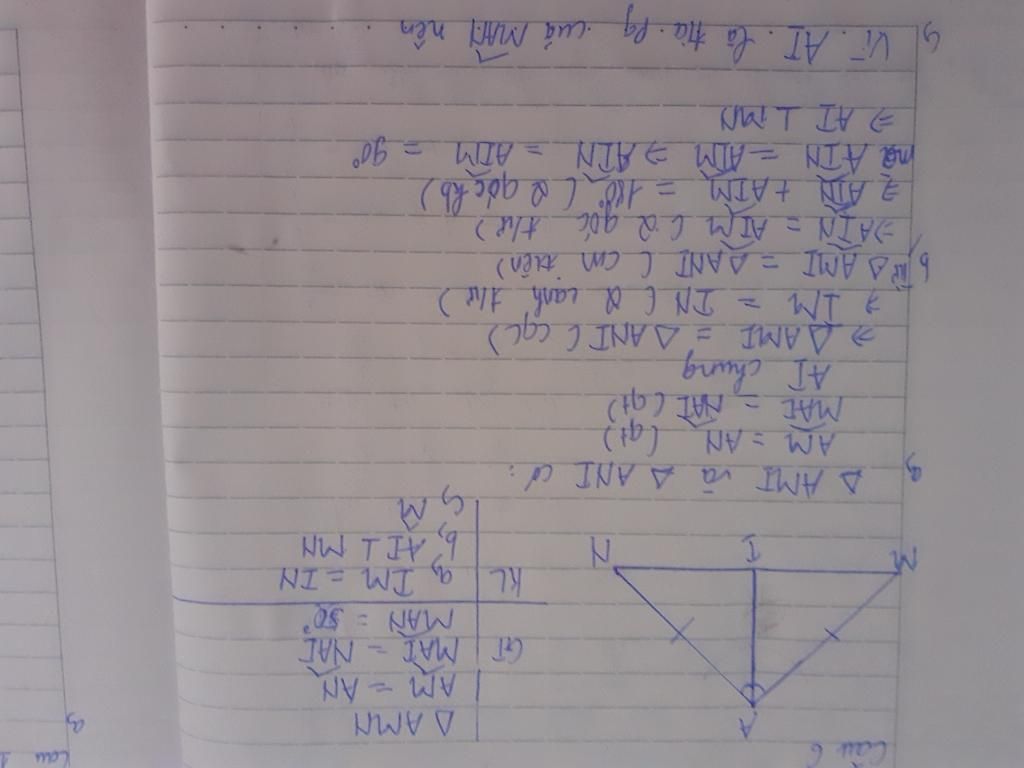 Câu 6
A
M
I
N
Δ AMN
GT
AM = AN
MAI = NAI
MAN = 50°
KL
a, IM = IN
b, AI ⊥ MN
c, M̂
a, Δ AMI và Δ ANI có:
AM = AN (gt)
MAI = NAI (gt)
AI chung
⇒ Δ AMI = Δ ANI (cgc)
⇒ IM = IN (2 cạnh t/ư)
b, Từ Δ AMI = Δ ANI (cm trên)
⇒ AIN = AIM (2 góc t/ư)
⇒ AIN + AIM = 180° (2 góc kb)
mà AIN = AIM ⇒ AIN = AIM = 90°
⇒ AI ⊥ MN
c, Vì AI là tia pg của MAN nên . . . . . .
Câu 1
a,